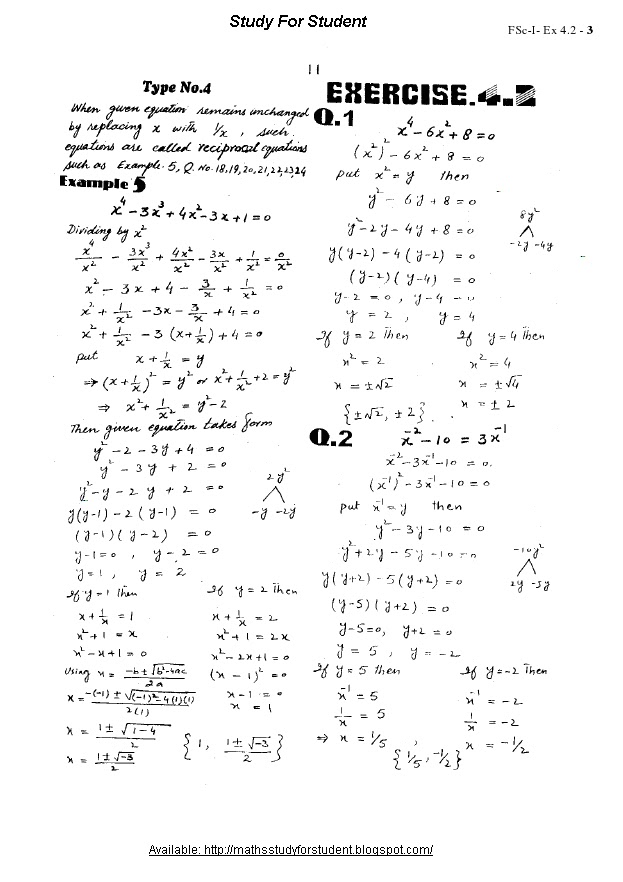 Study For Student
FSc-I- Ex 4.2 - 3
11
Type No.4
When given equation remains unchanged
by replacing x with 1/x, such
equations are called reciprocal equations
such as Example 5, Q. No. 18,19,20,21,22,23,24
Example 5
x⁴-3x³+4x²-3x+1=0
Dividing by x²
x⁴/x² - 3x³/x² + 4x²/x² - 3x/x² + 1/x² = 0/x²
x² - 3x + 4 - 3/x + 1/x² = 0
x² + 1/x² - 3x - 3/x + 4 = 0
x² + 1/x² - 3(x+1/x) + 4 = 0
put x + 1/x = y
⇒ (x+1/x)² = y² or x²+1/x²+2=y²
⇒ x² + 1/x² = y²-2
Then given equation takes form
y² - 2 - 3y + 4 = 0
y² - 3y + 2 = 0
2y²
y² - y - 2y + 2 = 0
y(y-1) - 2(y-1) = 0
-y -2y
(y-1)(y-2) = 0
y-1=0 , y-2=0
y=1 , y = 2
If y=1 then
x + 1/x = 1
x²+1 = x
x²-x+1=0
Using x = -b±√b²-4ac / 2a
x = -(-1) ± √(-1)²-4(1)(1) / 2(1)
x = 1±√1-4 / 2
x = 1±√-3 / 2
If y=2 Then
x+1/x = 2
x²+1 = 2x
x²-2x+1=0
(x-1)²=0
x-1=0
x = 1
{1, 1±√-3 / 2}
EXERCISE.4.2
Q.1
x⁴-6x²+8=0
(x²)²-6x²+8=0
put x²=y then
y²-6y+8=0
8y²
y²-2y-4y+8=0
-2y -4y
y(y-2)-4(y-2)=0
(y-2)(y-4)=0
y-2=0, y-4=0
y=2, y=4
If y=2 Then
x²=2
x=±√2
If y=4 Then
x²=4
x=±√4
x=±2
{±√2, ±2}
Q.2
x⁻²-10=3x⁻¹
x⁻²-3x⁻¹-10=0.
(x⁻¹)²-3x⁻¹-10=0
put x⁻¹=y then
y²-3y-10=0
-10y²
y²+2y-5y-10=0
2y -5y
y(y+2)-5(y+2)=0
(y-5)(y+2)=0
y-5=0, y+2=0
y=5, y=-2
If y=5 then
x⁻¹=5
1/x = 5
⇒ x=1/5 ,
If y=-2 Then
x⁻¹=-2
1/x=-2
x=-1/2
{1/5, -1/2}
Available: http://mathsstudyforstudent.blogspot.com/